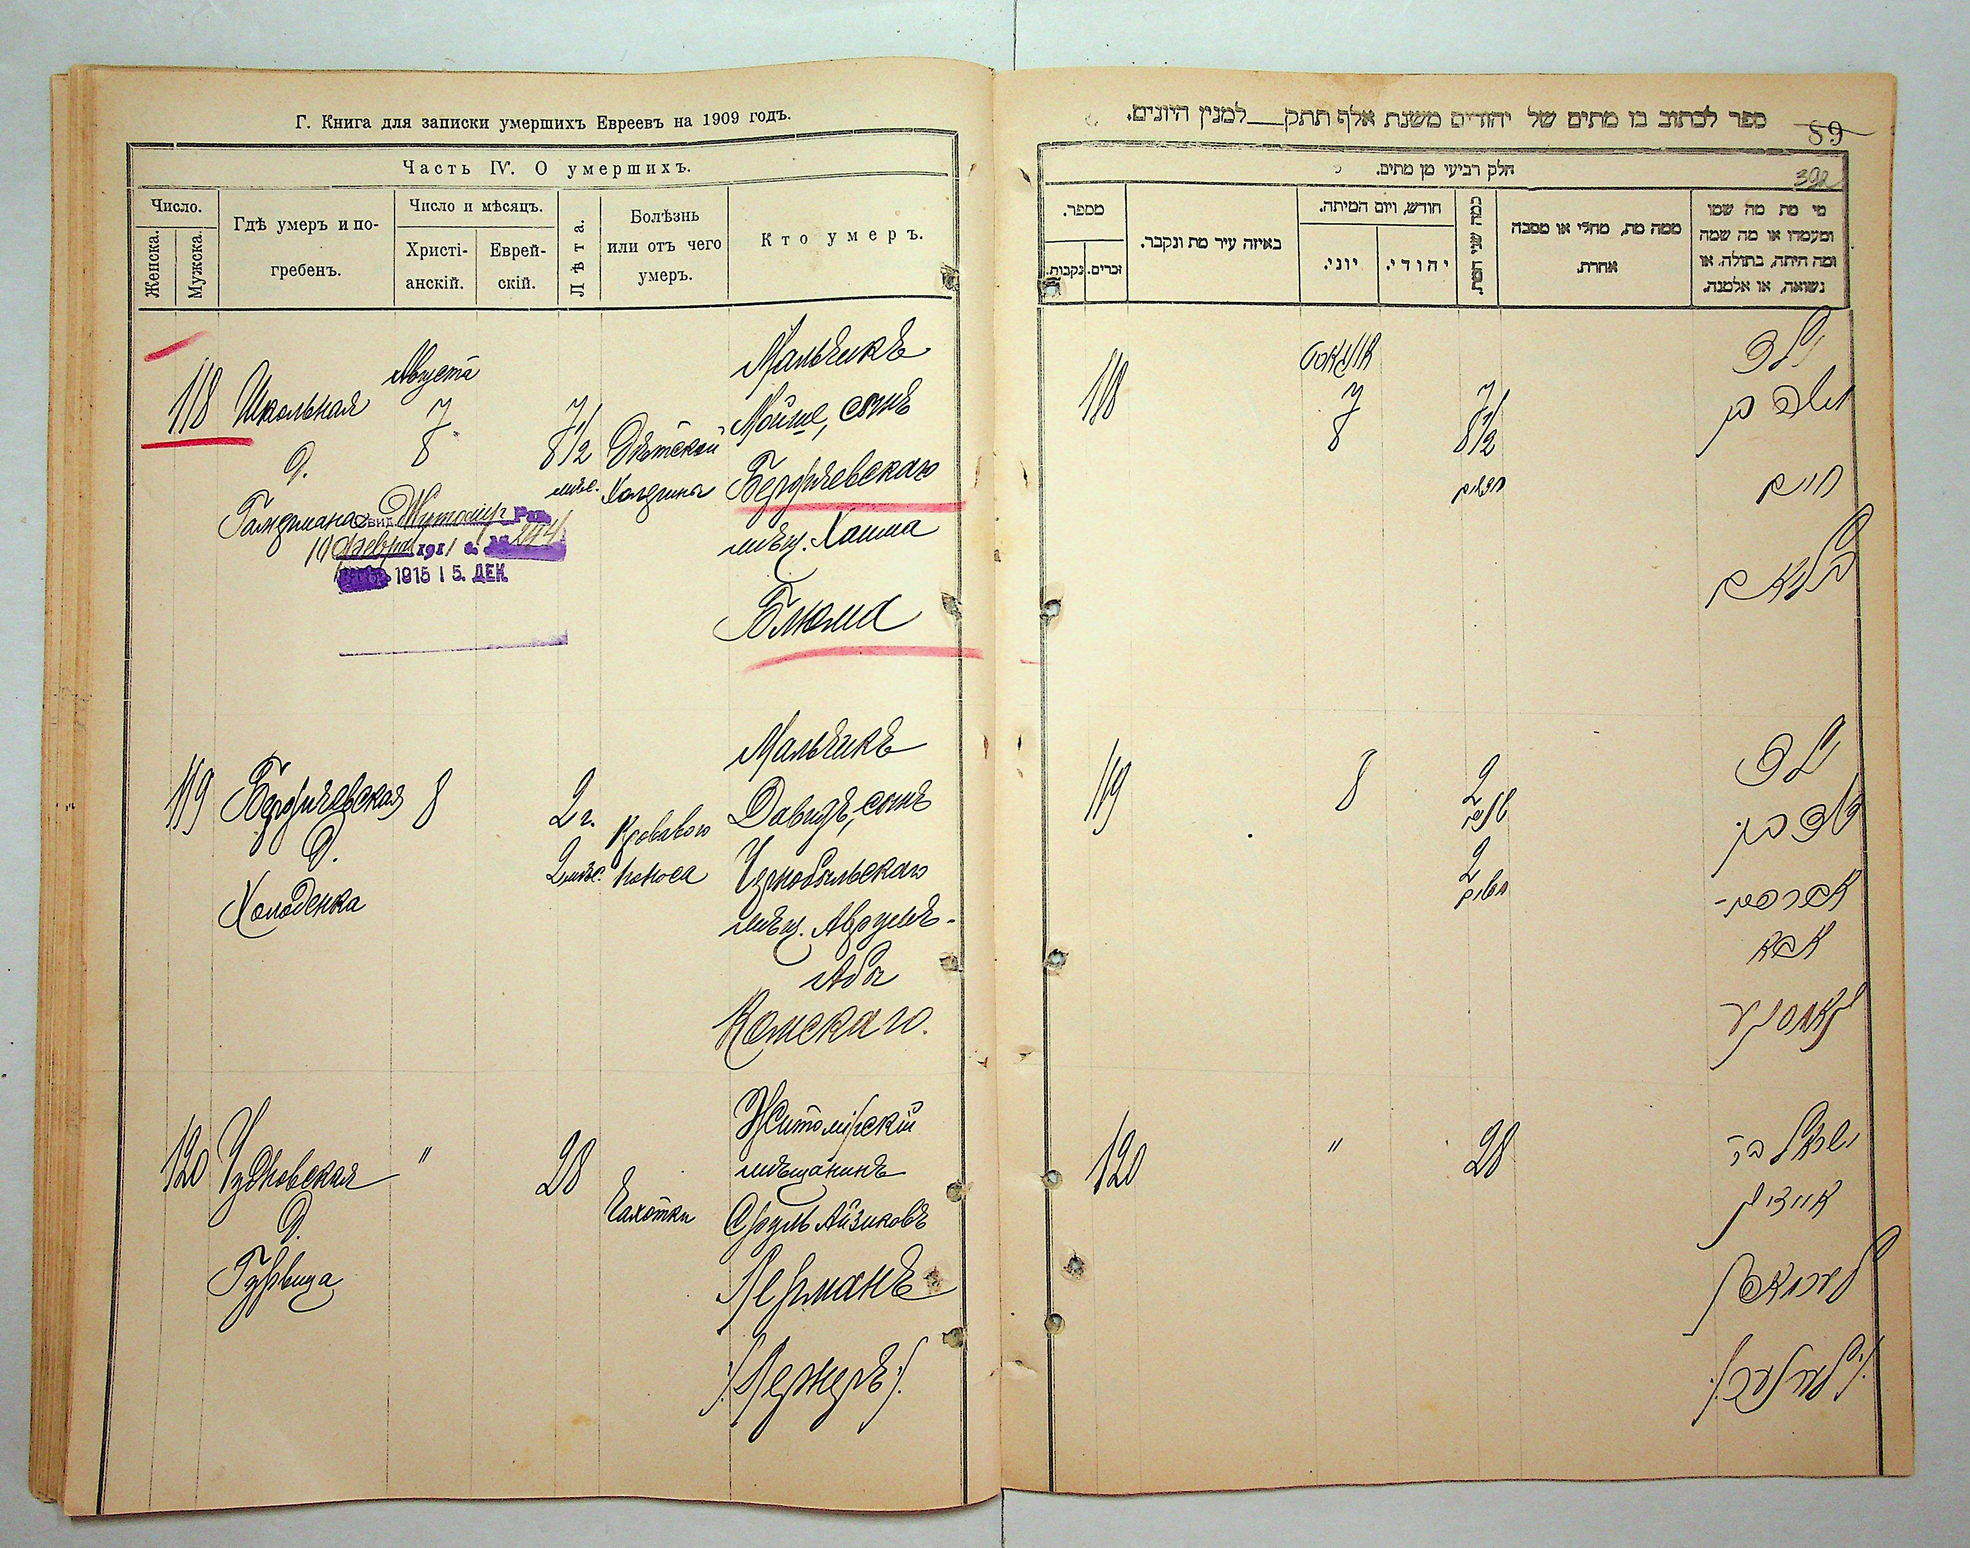 Г. Книга для записки умершихъ Евреевъ на 1909 годъ.
Часть IV. О умершихъ.
Число.
Женска.
Мужска.
Гдѣ умеръ и по-
гребенъ.
Число и мѣсяцъ.
Христі-
анскій.
Еврей-
скій.
Лѣта.
Болѣзнь
или отъ чего
умеръ.
Кто умеръ.
118
Школьная
д.
Гальдмана
Августа
7
8
7
8 1/2
мѣс.
Дѣтской
Холерины
Мальчикъ
Мойше, сынъ
Бердичевскаго
мѣщ. Хаима
Блюма
свид. Житомір. Рав.
10 Февр. 1911 г. № 244
1915 15. ДЕК.
119
Бердичевская
д.
Холоденка
8
2 г.
2 мѣс.
Кроваваго
поноса
Мальчикъ
Давидъ, сынъ
Чернобыльскаго
мѣщ. Аврумъ-
Абы
Комскаго.
120
Чудновская
д.
Гурвица
"
28
Чахотки
Житомірскій
мѣщанинъ
Сруль Айзиковъ
Лерманъ
/Лернеръ/.
ספר לכתוב בו מתים של יהודים משנת אלף תתק למנין היונים.
89
392
חלק רביעי מן מתים.
מספר.
נקבות.
זכרים.
באיזה עיר מת ונקבר.
חודש, ויום המיתה.
יוני.
יהודי.
כמה שני המת.
ממה מת, מחלי או מסבה
אחרת.
מי מת מה שמו
ומעמדו או מה שמה
ומה היתה, בתולה, או
נשואה, או אלמנה.
118
אווגוסט
7
8
7
8 1/2
חדשים
ילד
משה בן
חיים
בלומא
119
8
2
שנים
2
חדשים
ילד
דוד בן
אברהם-
אבא
קאמסקי
120
"
28
ישראל בר
אייזיק
לערמאן
/לערנער/